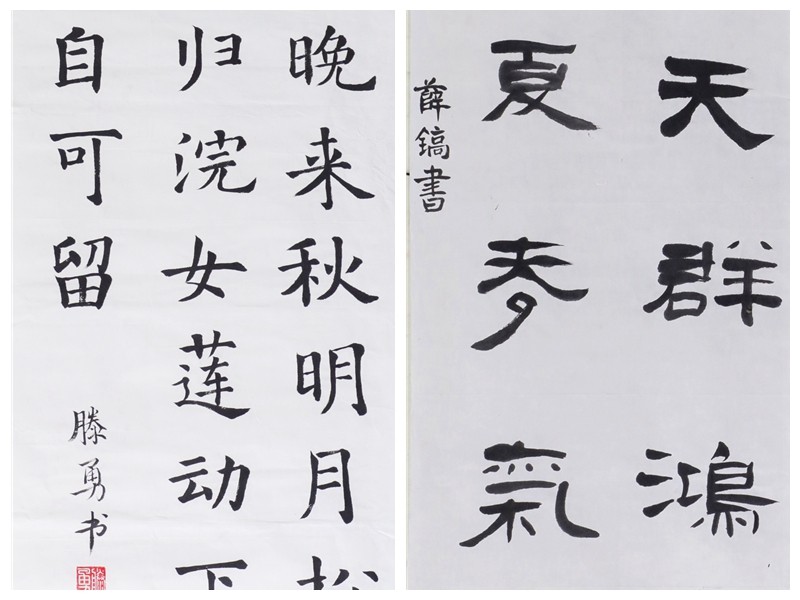 晚来秋明月松
归浣女莲动下
自可留
滕勇书
天群鴻
夏氣
薛镐書